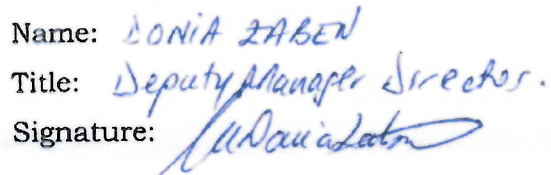 Name: DONIA ZABEN
Title: Deputy Manager Director.
Signature: